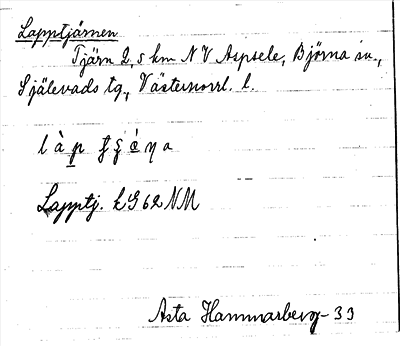 Lapptjärnen
Tjärn 2,5 km NV Aspsele, Björna sn.,
Själevads tg., Västernorrl. l.
Lapptj. LG 62 NM
Asta Hammarberg - 33